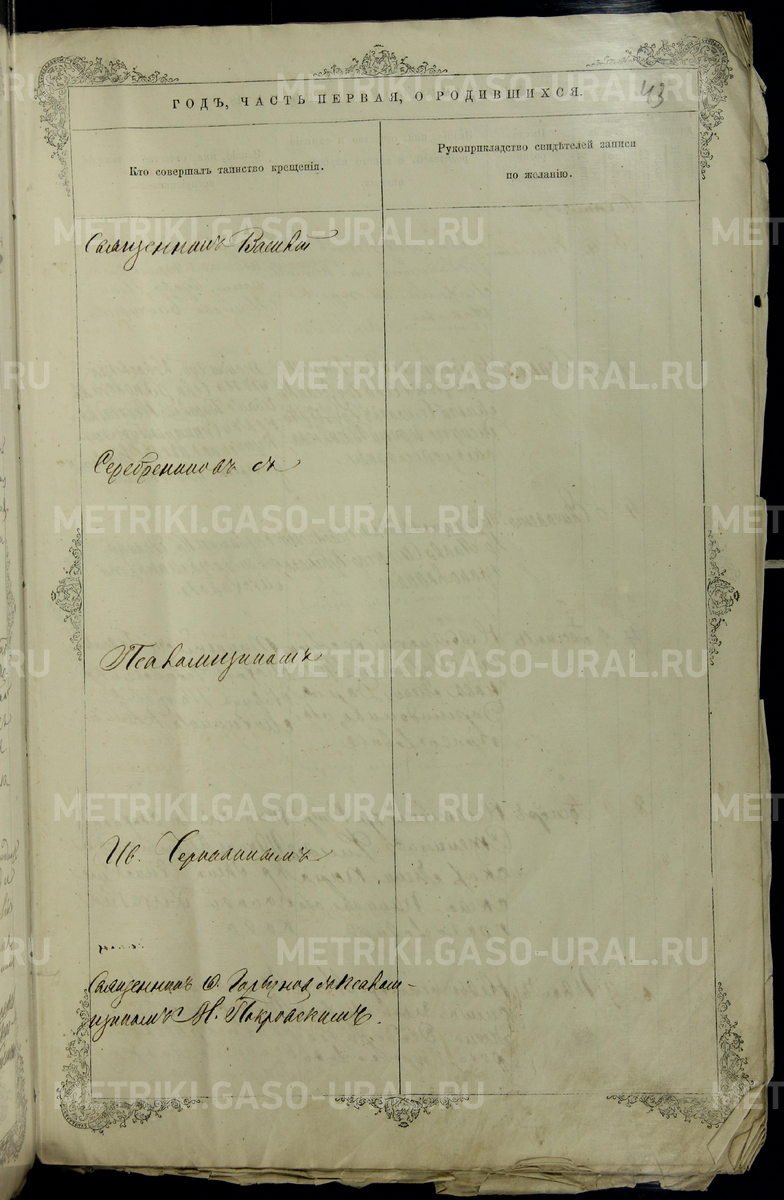 43
ГОДЪ, ЧАСТЬ ПЕРВАЯ, О РОДИВШИХСЯ.
Кто совершалъ таинство крещенія.
Рукоприкладство свидѣтелей записи
по желанію.
Священникъ Василій
Серебрениковъ съ
Псаломщикомъ
Ив.
Священникъ Ѳ. съ Псалом-
щикомъ Н. Покровскимъ.
METRIKI.GASO-URAL.RU